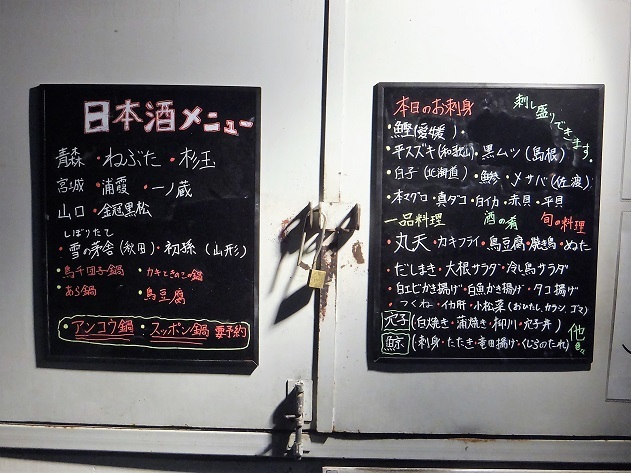 日本酒メニュー
青森・ねぶた・杉玉
宮城・浦霞・一ノ蔵
山口・金冠黒松
しぼりたて
・雪の茅舎(秋田)・初孫(山形)
・鳥千団子鍋・カキときのこ鍋
・あら鍋・鳥豆腐
・アンコウ鍋・スッポン鍋 要予約
本日のお刺身
刺し盛りできます。
・鰹(愛媛)
・平スズキ(和歌山)・黒ムツ(島根)
・白子(北海道)・鯵・〆サバ(佐渡)
・本マグロ・真ダコ・白イカ・赤貝・平貝
一品料理 酒の肴 旬の料理
・丸天・カキフライ・鳥豆腐・焼き鳥・ぬた
・だしまき・大根サラダ・冷し鳥サラダ
・白エビかき揚げ・白魚かき揚げ・タコ揚げ
・つくね・イカ肝・小松菜(おひたし、カラシ、ゴマ)
穴子(白焼き・蒲焼き・柳川・穴子丼)
鯨(刺身・たたき・竜田揚げ・くじらのたれ)
他色々